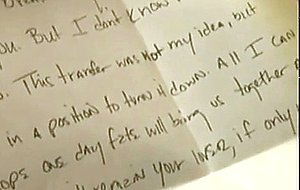 u. But I don't know
. This tranfer was not my idea, but
in a position to turn it down. All I can
ops one day fats will bring us together
your loser, if only